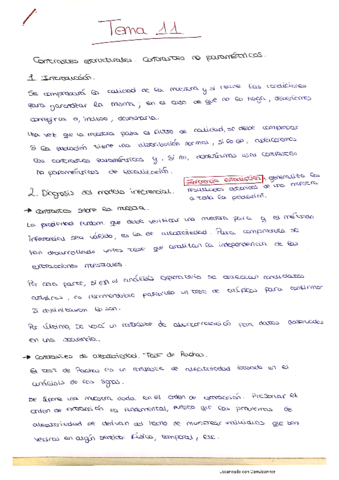 Tema 11
Contrastes estructurales. Contrastes no paramétricos.
1. Introducción.
Se comprobará la calidad de la muestra y si reúne las condiciones
para garantizar la misma, en el caso de que no las haga, debemos
corregirla o, incluso, desecharla.
Una vez que la muestra pasa el filtro de calidad, se debe comprobar
si la población tiene una distribución normal, si lo es, aplicaremos
los contrastes paramétricos y, si no, realizaremos los contrastes
no paramétricos de localización.
Inferencia estadística: generaliza los
resultados obtenidos de una muestra
a toda la población.
2. Diagnosis del modelo inferencial.
→ Contrastes sobre la muestra.
La propiedad random que debe verificar una muestra para que el método
inferencial sea válido, es la de aleatoriedad. Para comprobarla se
han desarrollado unos test que analizan la independencia de las
extracciones muestrales.
Por otra parte, si en el análisis exploratorio se detectan candidatos
a outliers, es recomendable practicar un test de outliers para confirmar
si definitivamente lo son.
Por último, se verá un contraste de autocorrelación para datos observados
en una secuencia.
→ Contrastes de aleatoriedad. Test de Rachas.
El test de Rachas es un contraste de aleatoriedad basado en el
análisis de los signos.
Se supone una muestra dada en el orden de extracción. Preservar el
orden de extracción es fundamental, puesto que los problemas de
aleatoriedad se derivan del hecho de muestrear individuos que son
vecinos en algún sentido físico, temporal, etc.
Escaneado con CamScanner